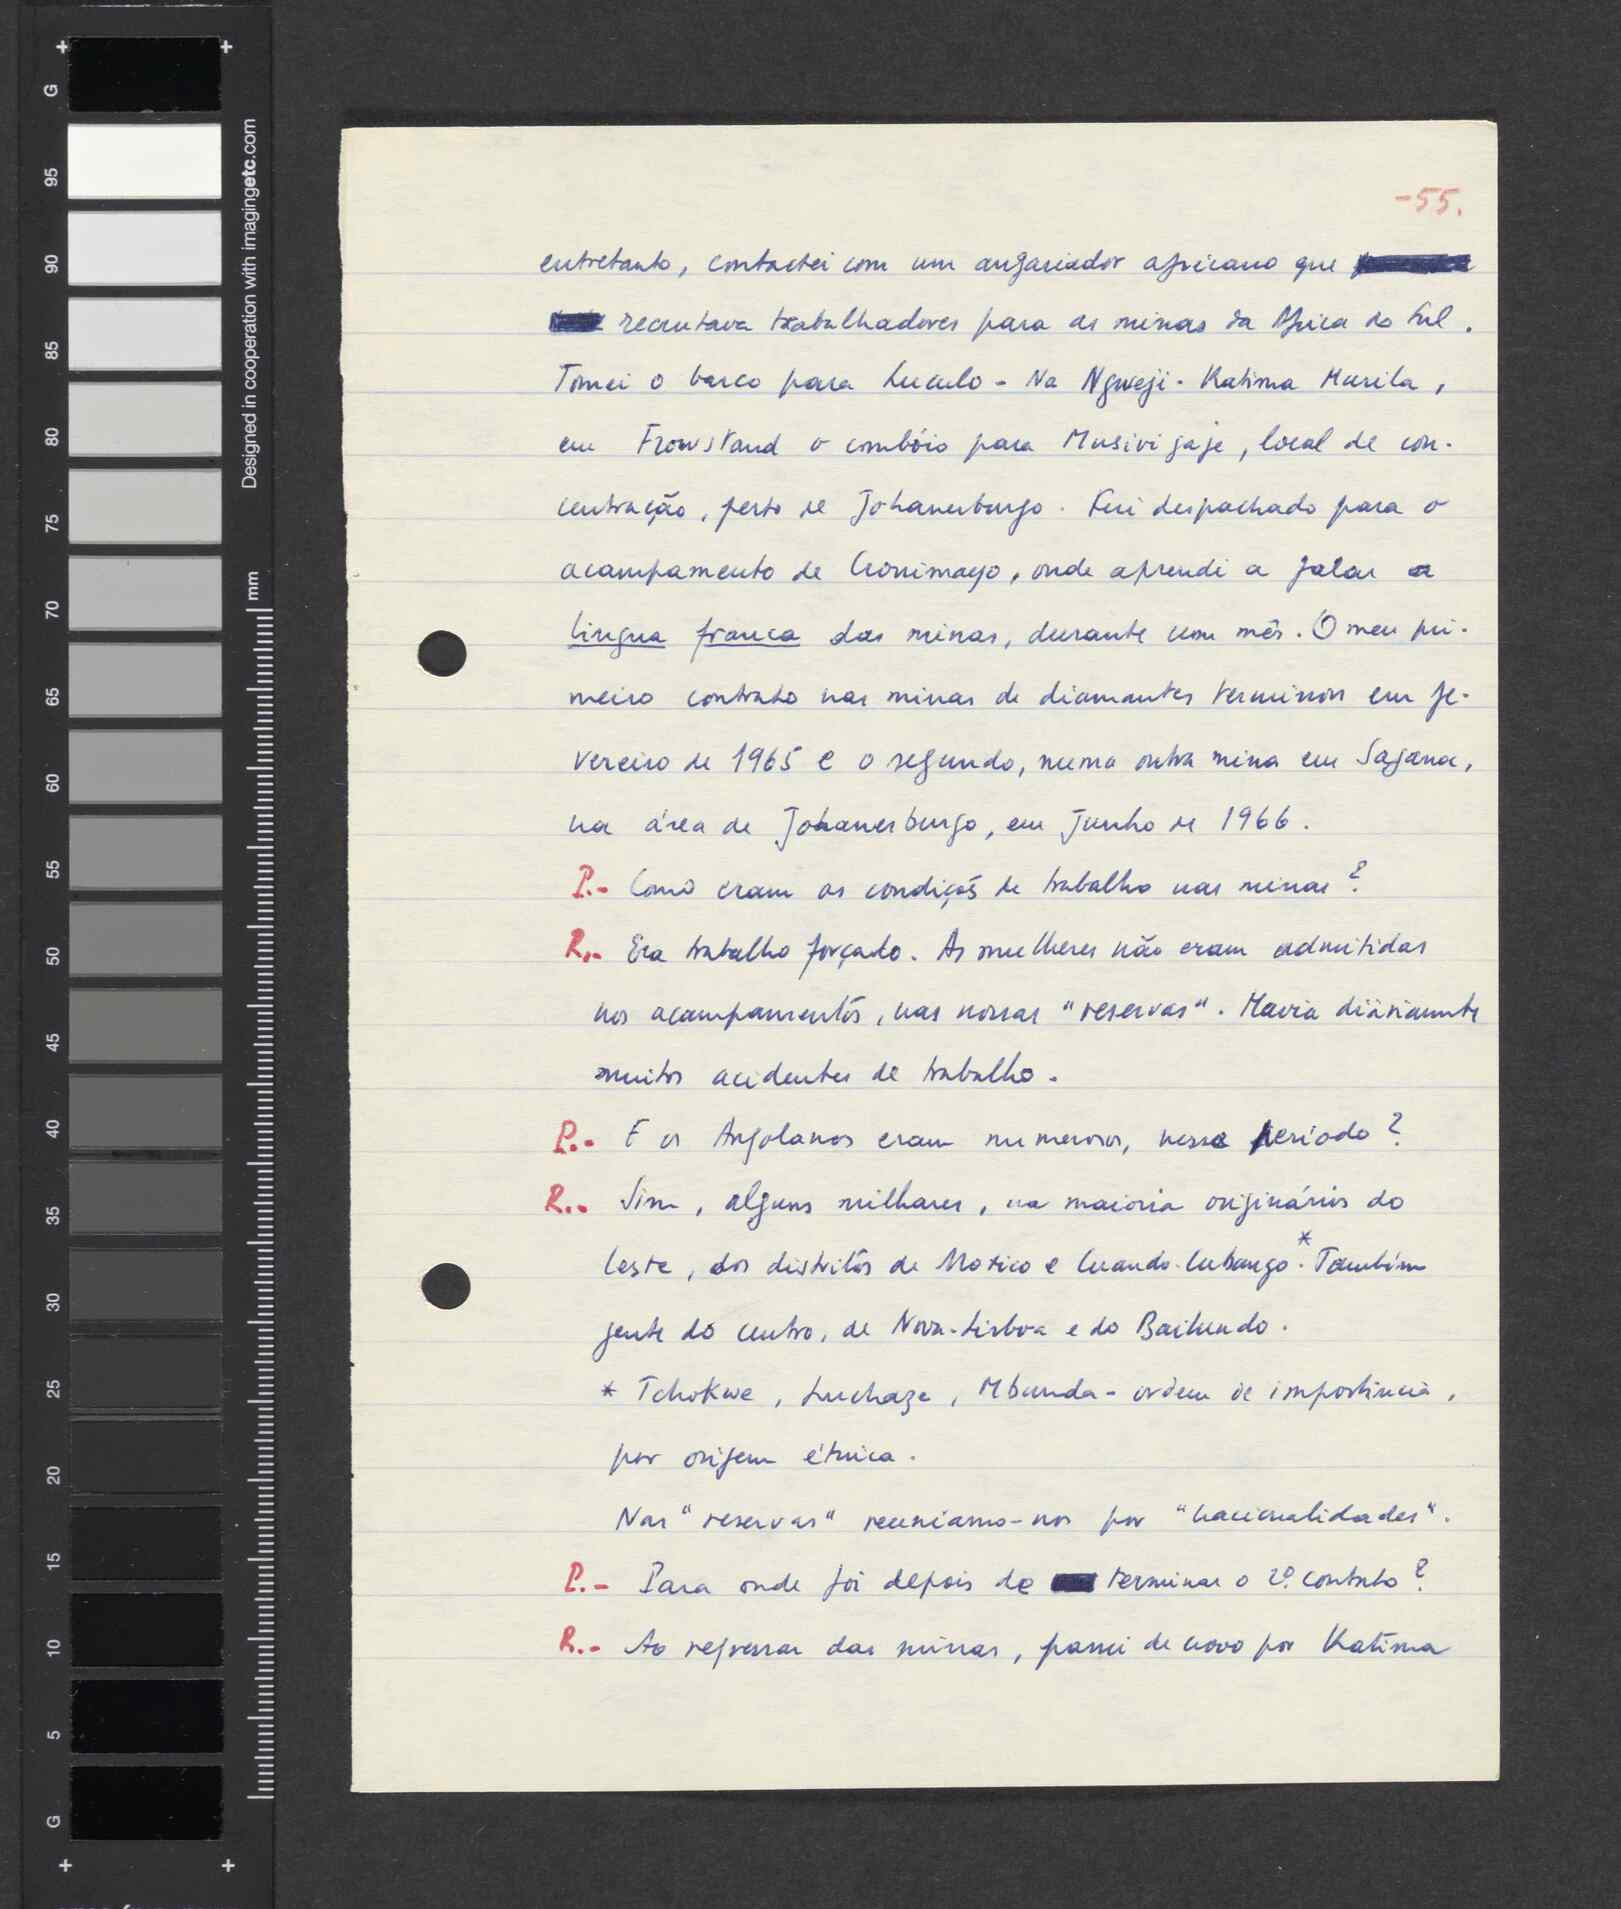 G
95
90
85
80
75
70
65
60
55
50
45
40
35
30
25
20
15
10
5
G
Designed in cooperation with imagingetc.com
mm
-55.
entretanto, contactei com um angariador africano que
recrutava trabalhadores para as minas da Africa do Sul.
Tomei o barco para Luculo - Na Ngweji - Katima Murila,
em o combóio para Musivigaje, local de con-
centração, perto de Johanesburgo. Fui despachado para o
acampamento de, onde aprendi a falar a
lingua franca das minas, durante um mês. O meu pri-
meiro contrato nas minas de diamantes terminou em fe-
vereiro de 1965 e o segundo, numa outra mina em Sagana,
na área de Johanesburgo, em Junho de 1966.
P.- Como eram as condições de trabalho nas minas?
R.- Era trabalho forçado. As mulheres não eram admitidas
nos acampamentos, nas nossas "reservas". Havia diàriamente
muitos acidentes de trabalho.
P.- E os Angolanos eram numerosos, nesse período?
R.- Sim, alguns milhares, na maioria originários do
leste, dos distritos de Moxico e Cuando-Cubango*. Também
gente do centro, de Nova-Lisboa e do Bailundo.
* Tchokwe, Luchaze, Mbunda - ordem de importância,
por origem étnica.
Nas "reservas" reuniamo-nos por "nacionalidades".
P.- Para onde foi depois de terminar o 2º contrato?
R.- Ao regressar das minas, passei de novo por Katima